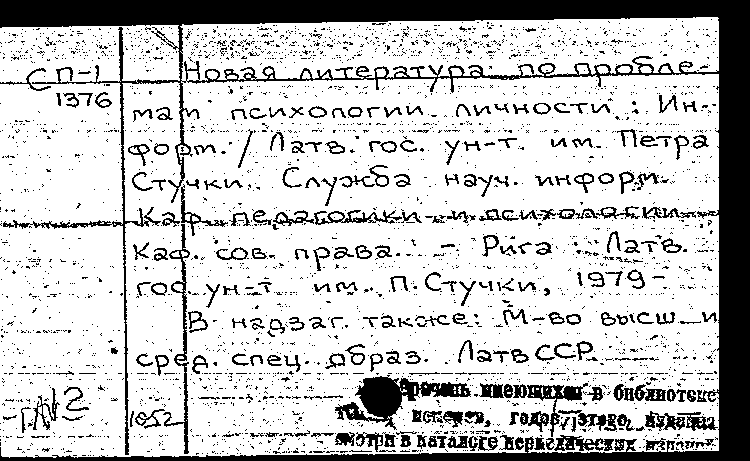 СП-1
1376
Новая литература по пробле-
мам психологии личности : Ин-
форм. / Латв. гос. ун-т. им. Петра
Стучки. Служба науч. информ.
Каф. педагогики и психологии
Каф. сов. права. - Рига : Латв.
гос. ун-т им. П. Стучки, 1979-
В надзаг. также: М-во высш. и
сред. спец. образ. Латв ССР.
1052
имеющихся в библиотеке
годов этого издания
смотри в каталоге периодических изданий